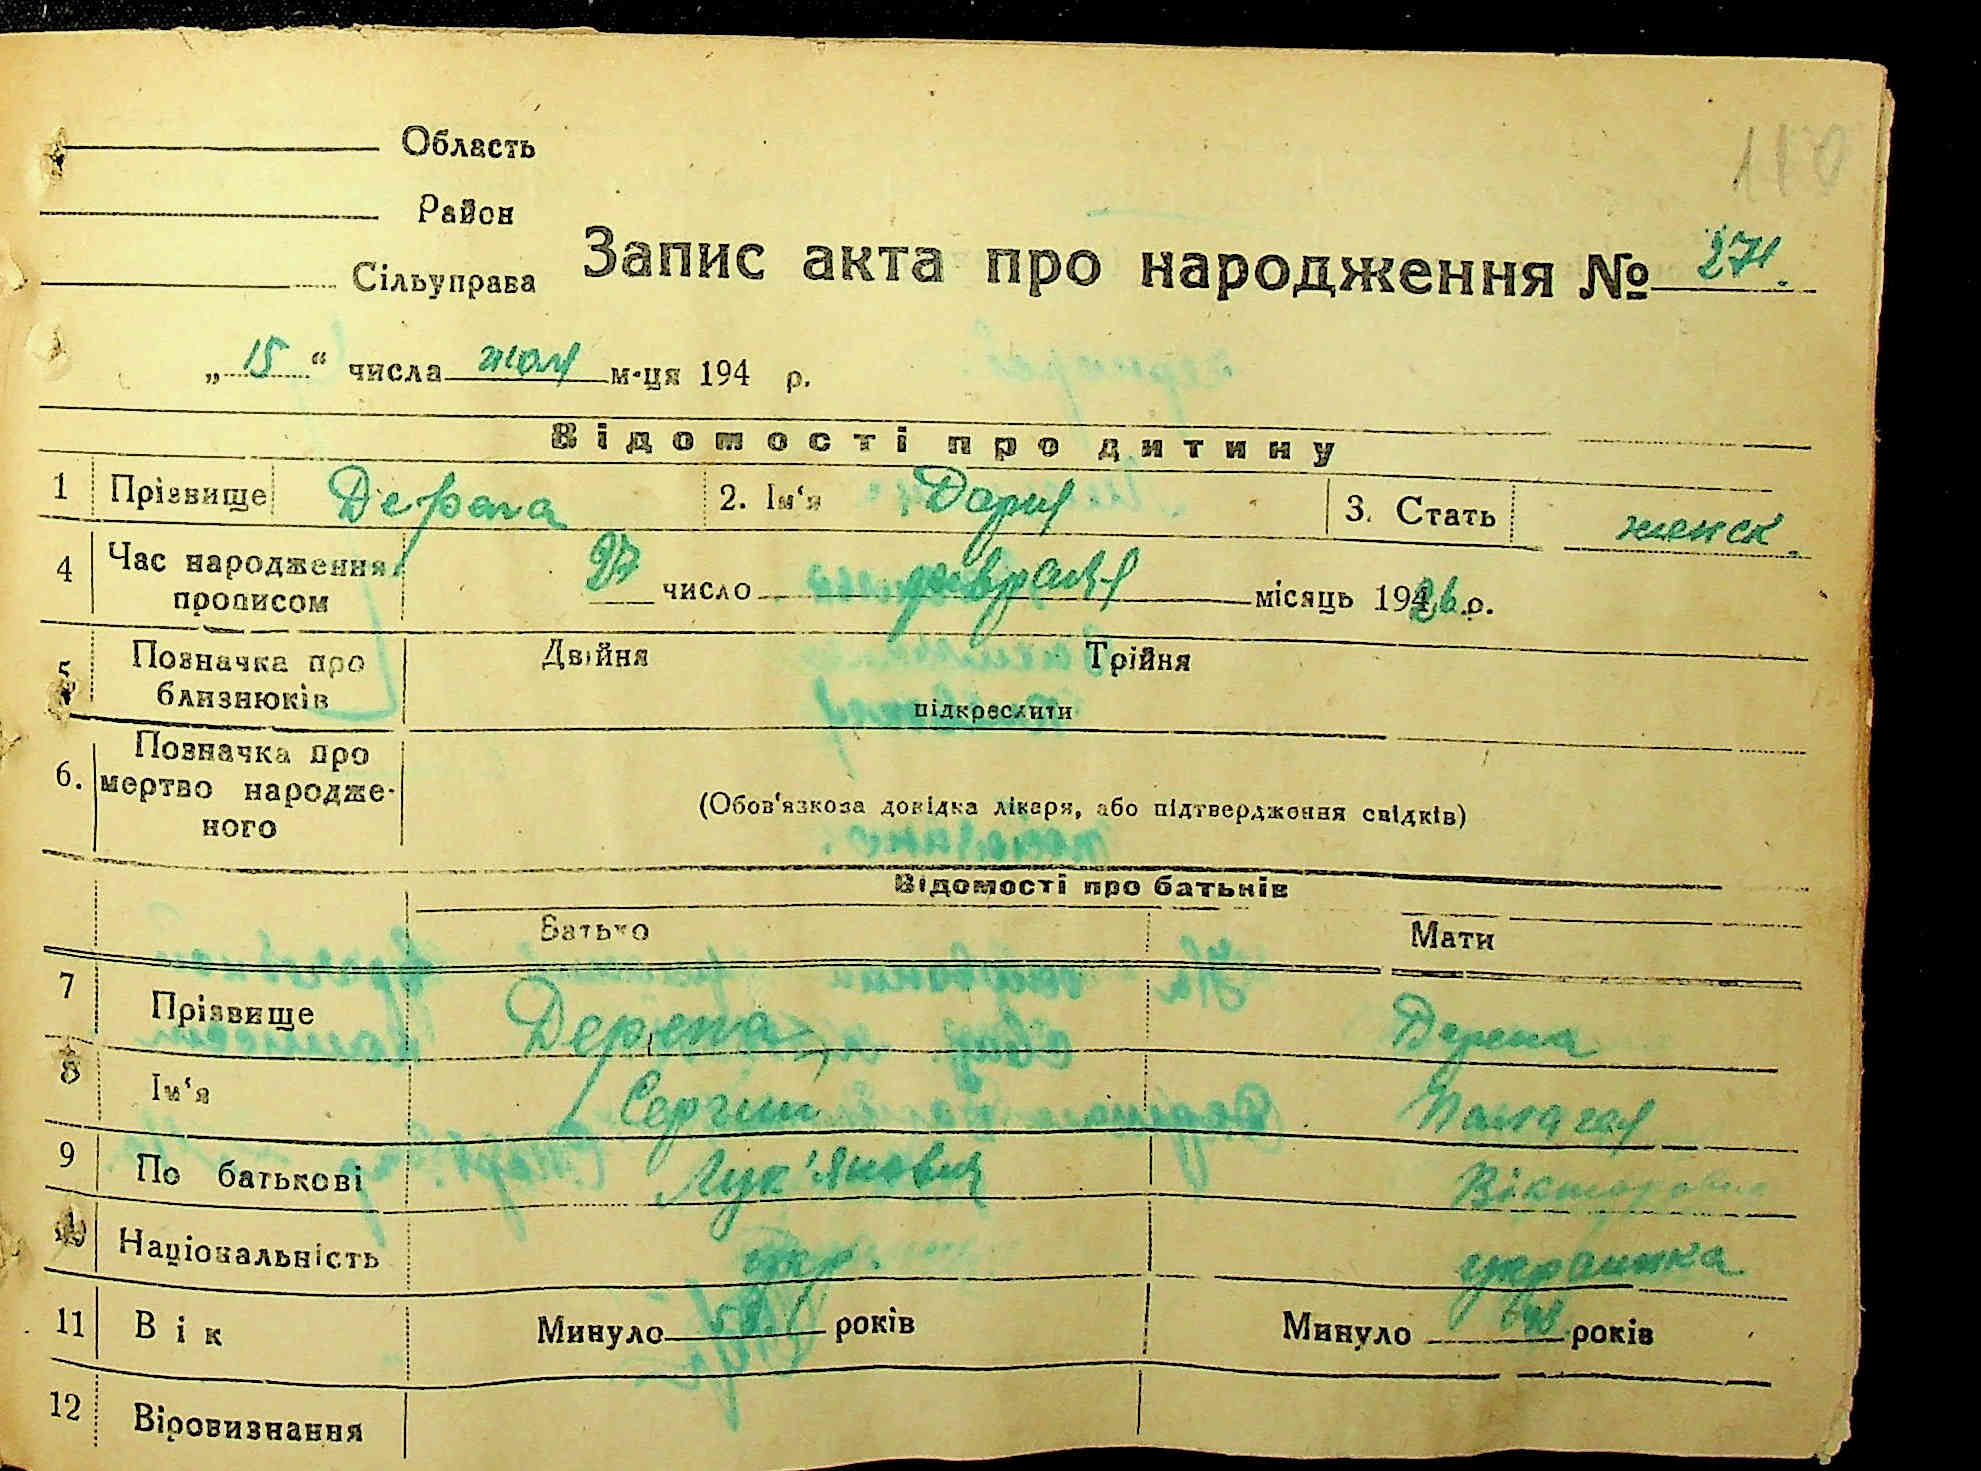 110
Область
Район
Сільуправа
Запис акта про народження № 271.
„15“ числа мая м-ця 194 р.
Відомості про дитину
1 Прізвище Дерепа 2. Ім‘я Дарія 3. Стать женск.
4 Час народження прописом 27 число февраля місяць 1926 р.
5 Позначка про близнюків Двійня Трійня
підкреслити
6. Позначка про мертво народже-
ного
(Обов‘язкова довідка лікаря, або підтвердження свідків)
Відомості про батьків
Батько Мати
7 Прізвище Дерепа Дерепа
8 Ім‘я Сергій
9 По батькові Лук'янович Вікторовна
10 Національність укр. украинка
11 Вік Минуло років Минуло років
12 Віровизнання